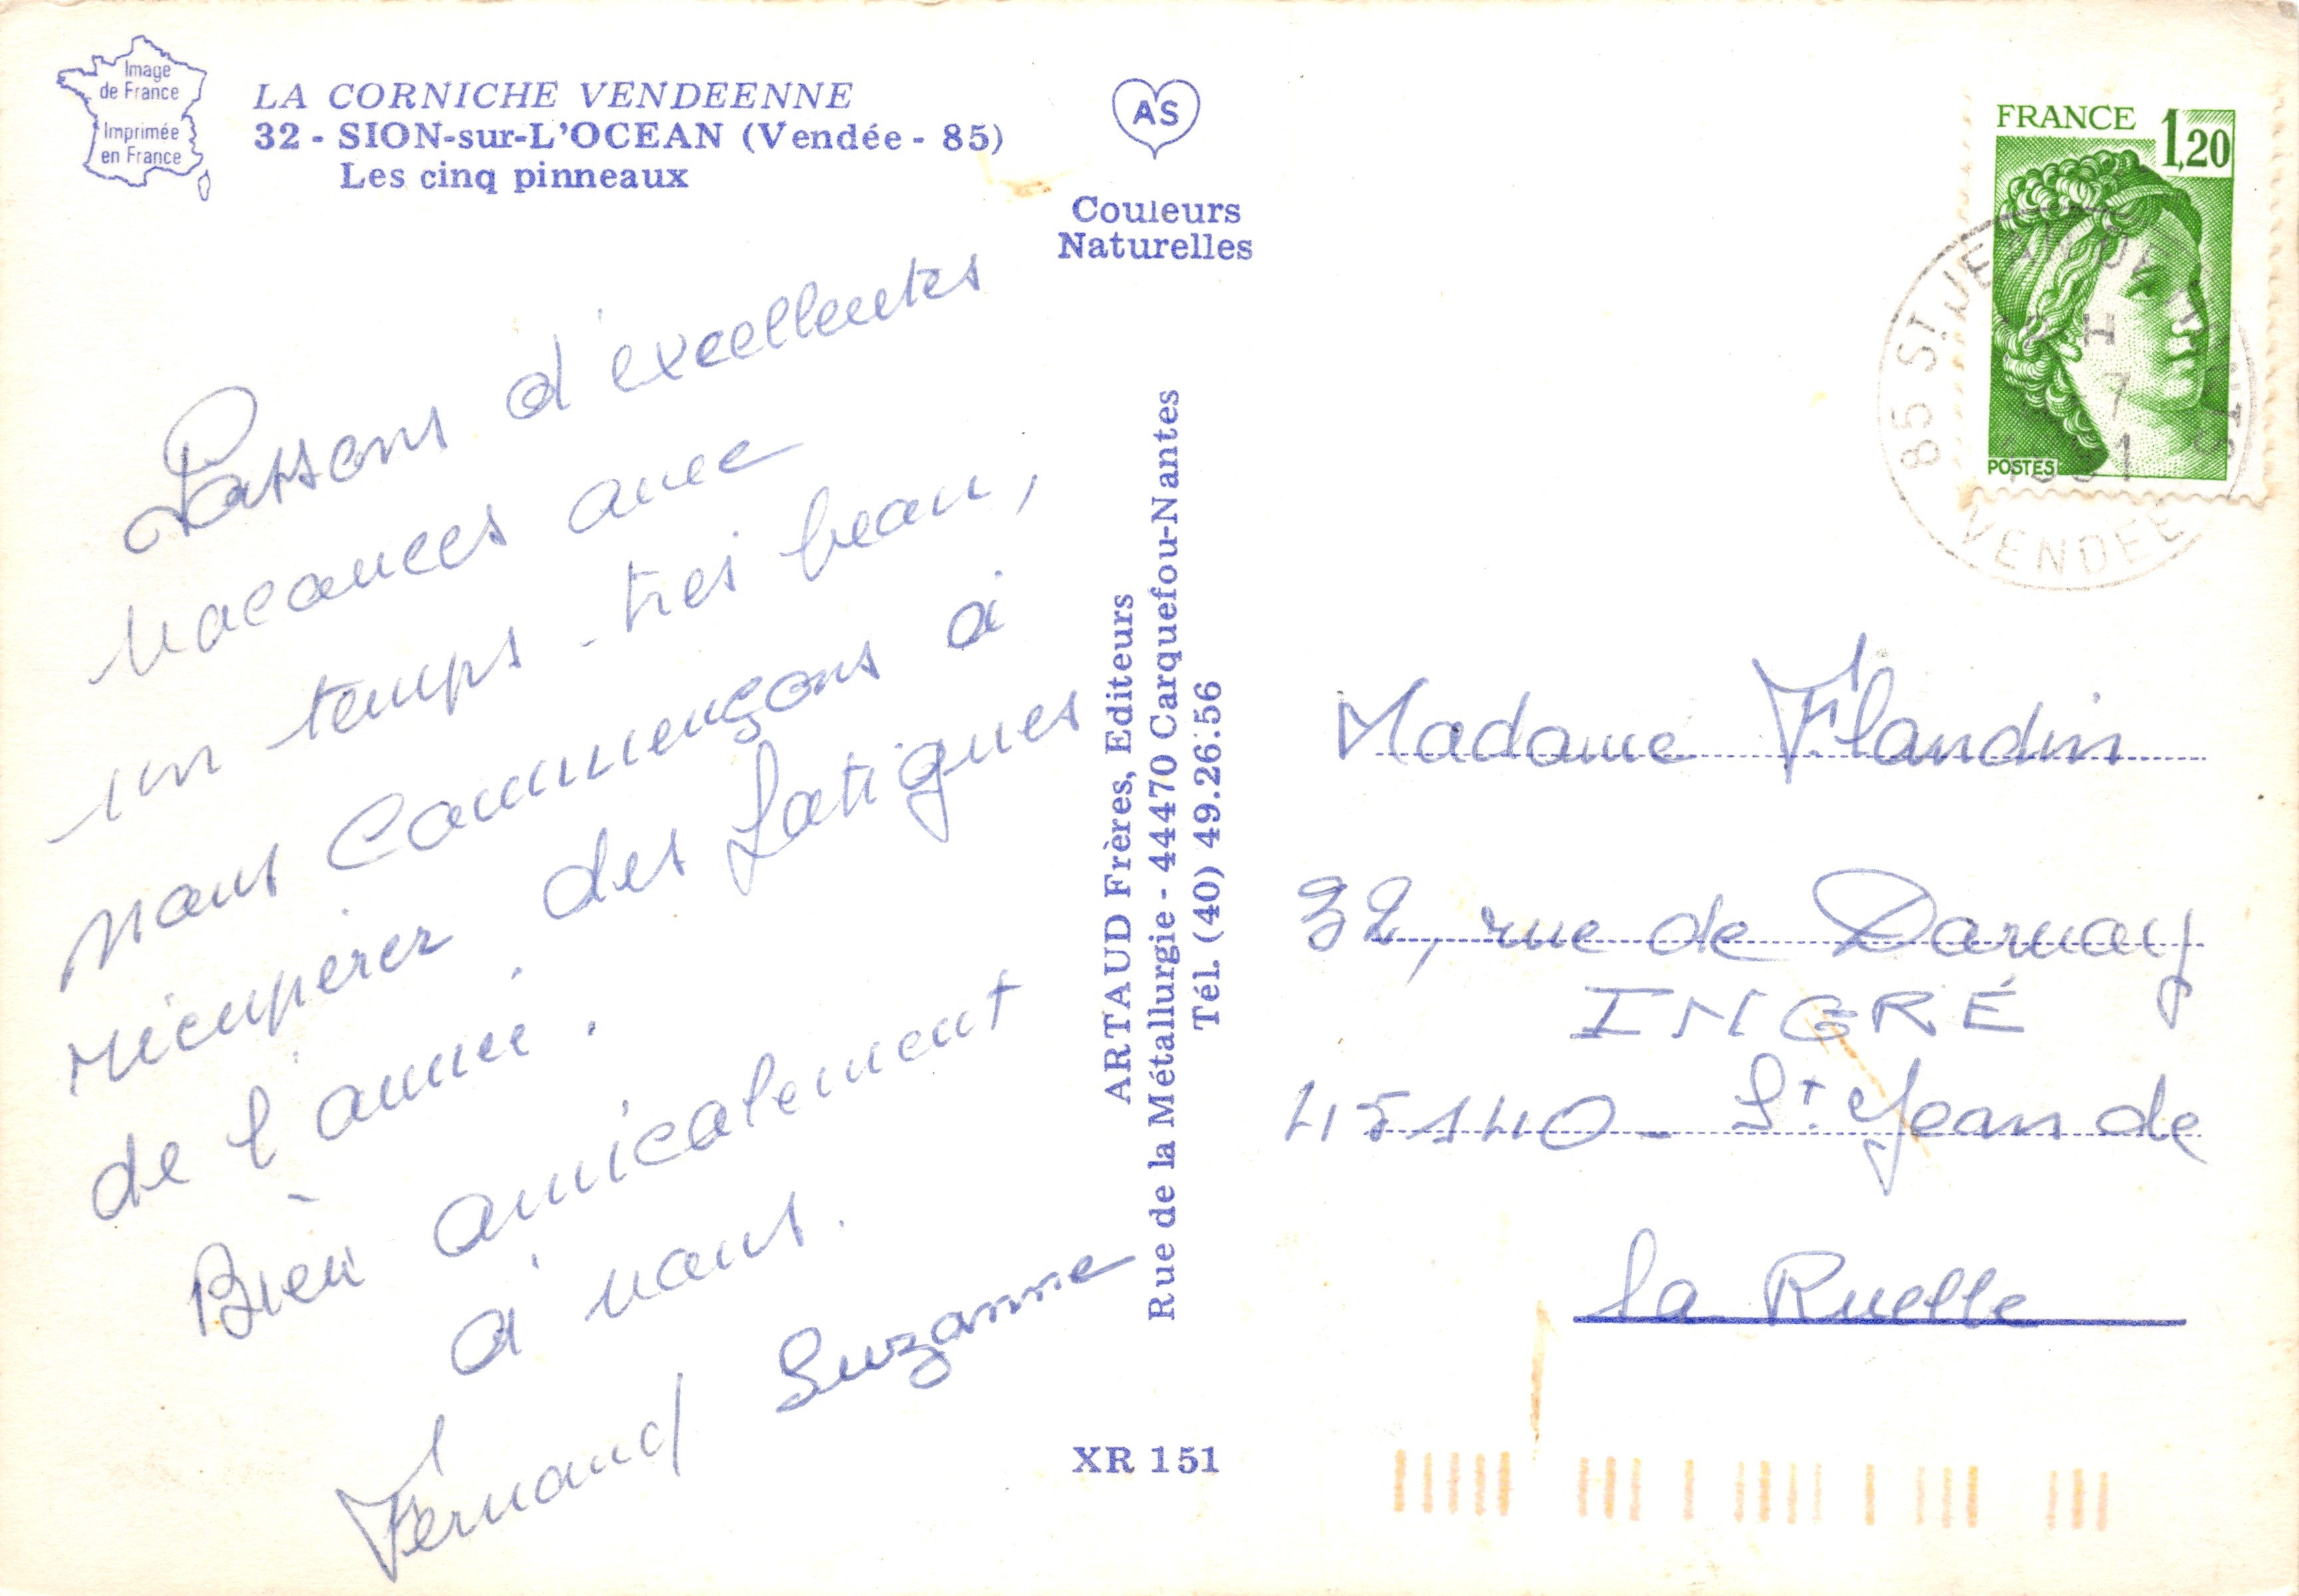 Image
de France
Imprimée
en France
LA CORNICHE VENDEENNE
32 - SION-sur-L'OCEAN (Vendée - 85)
Les cinq pinneaux
AS
Couleurs
Naturelles
Passons d'excellentes
vacances avec
un temps très beau,
nous commençons à
récupérer des fatigues
de l'année.
Bien amicalement
à vous.
Fernand Suzanne
ARTAUD Frères, Editeurs
Rue de la Métallurgie - 44470 Carquefou-Nantes
Tél. (40) 49.26.56
XR 151
FRANCE 1,20
POSTES
85 ST JEAN
VENDEE
Madame Flandin
32, rue de Darnay
INGRÉ
45140 - St Jean de
la Ruelle